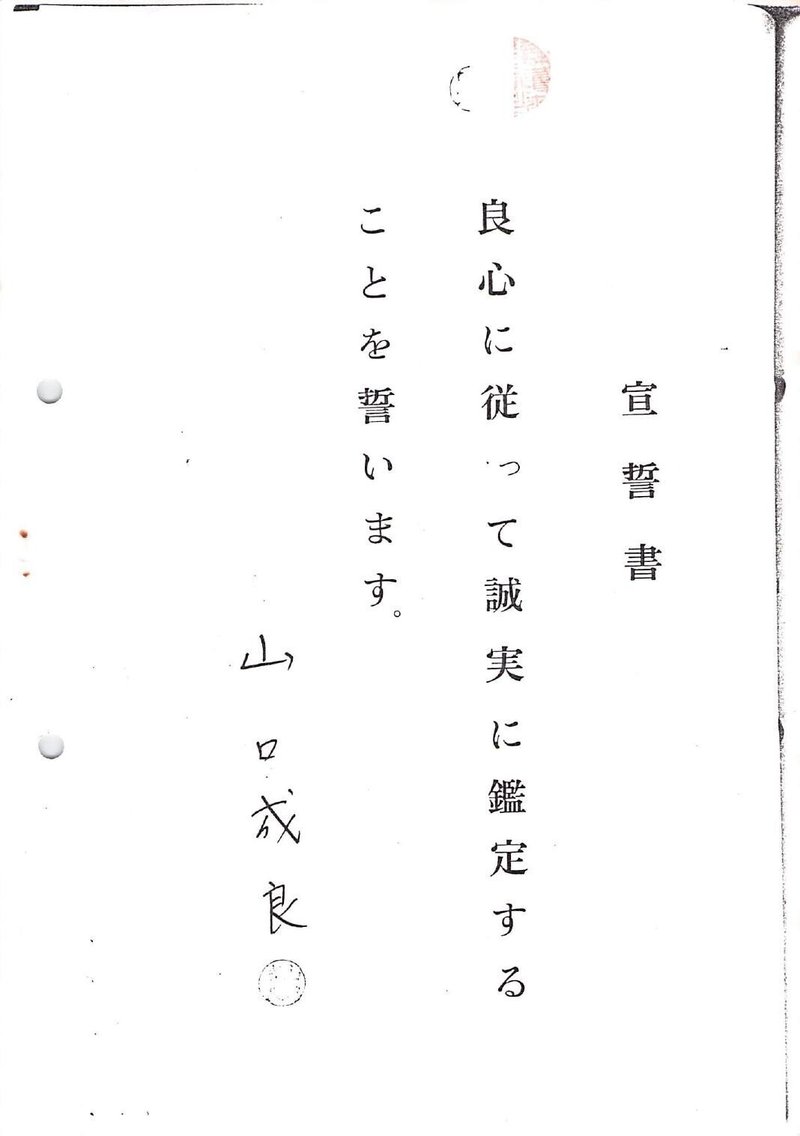 宣誓書
良心に従って誠実に鑑定する
ことを誓います。
山口成良